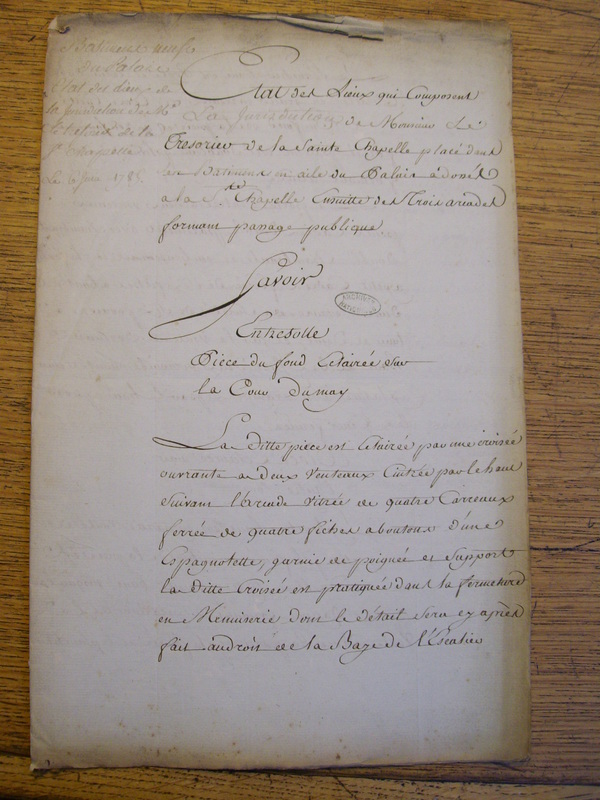 Batiment neuf
du Palais
Etat des lieux de
la Jurisdiction de Mr
le Tresor de la
Ste Chapelle
Le 6 1785
Etat des Lieux qui Composent
La Jurisdiction de Monsieur Le
Tresorier de la Sainte Chapelle placé dans
les Batimens en aile du Palais adonés
a la Ste Chapelle Ensuitte des Trois arcades
formant passage publique
Savoir
ARCHIVES
Entresolle
Piece du fond Eclairée sur
la Cour Dumay
La Ditte piece est Eclairée par une croisée
ouvrante a deux Venteaux Cintrée par le haut
Suivant l'arcade vitrée de quatre Carreaux
ferrée de quatre fiches a boutons d'une
Espagnolette, garnie de poignée et Support
la Ditte Croisé est pratiquée dans la fermeture
en Menuiserie dont le détail sera cy après
fait audroit de la Baye de l'Escalier